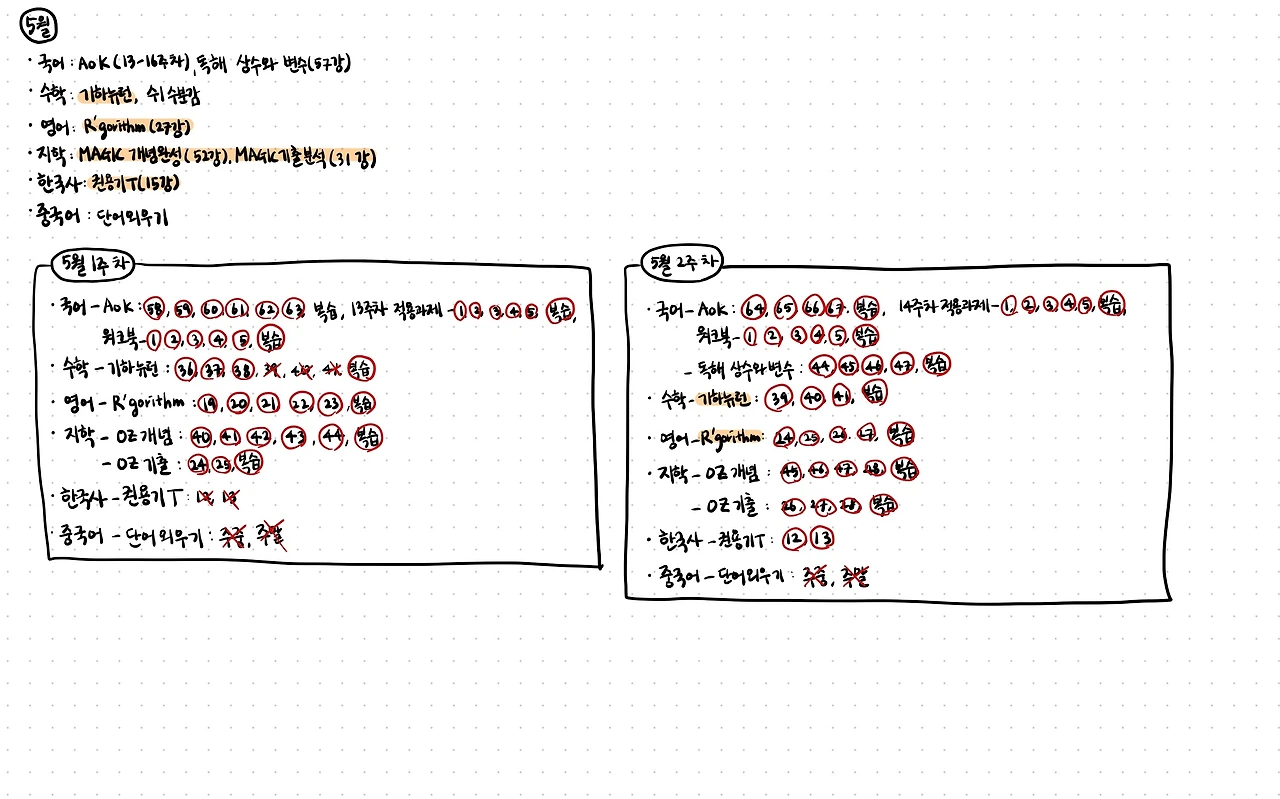 5월
· 국어 : AOK (13-16주차), 독해 상수와 변수(57강)
· 수학 : 기하뉴런, 수1 수분감
· 영어 : R'gorithm(27강)
· 지학 : MAGIC 개념완성(52강), MAGIC기출분석(31강)
· 한국사 : 권용기T(15강)
· 중국어 : 단어외우기
5월 1주차
· 국어 - AOK : 58, 59, 60, 61, 62, 63, 복습, 13주차 적용과제 - 1, 2, 3, 4, 5, 복습,
워크북 - 1, 2, 3, 4, 5, 복습
· 수학 - 기하뉴런 : 36, 37, 38, 39, 40, 41, 복습
· 영어 - R'gorithm : 19, 20, 21, 22, 23, 복습
· 지학 - OZ 개념 : 40, 41, 42, 43, 44, 복습
- OZ 기출 : 24, 25, 복습
· 한국사 - 권용기T : 12, 13
· 중국어 - 단어외우기 : 주중, 주말
5월 2주차
· 국어 - AOK : 64, 65, 66, 67, 복습, 14주차 적용과제 - 1, 2, 3, 4, 5, 복습,
워크북 - 1, 2, 3, 4, 5, 복습
- 독해 상수와 변수 : 44, 45, 46, 47, 복습
· 수학 - 기하뉴런 : 39, 40, 41, 복습
· 영어 - R'gorithm : 24, 25, 26, 27, 복습
· 지학 - OZ 개념 : 45, 46, 47, 48, 복습
- OZ 기출 : 26, 27, 28, 복습
· 한국사 - 권용기T : 12, 13
· 중국어 - 단어외우기 : 주중, 주말